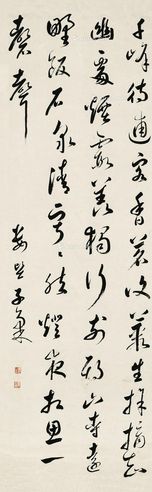 千峰待逋客香茗復叢生採摘知
幽處煙霞羨獨行期山寺遠
野飯石泉清寂寂然燈夜相思一
磬聲